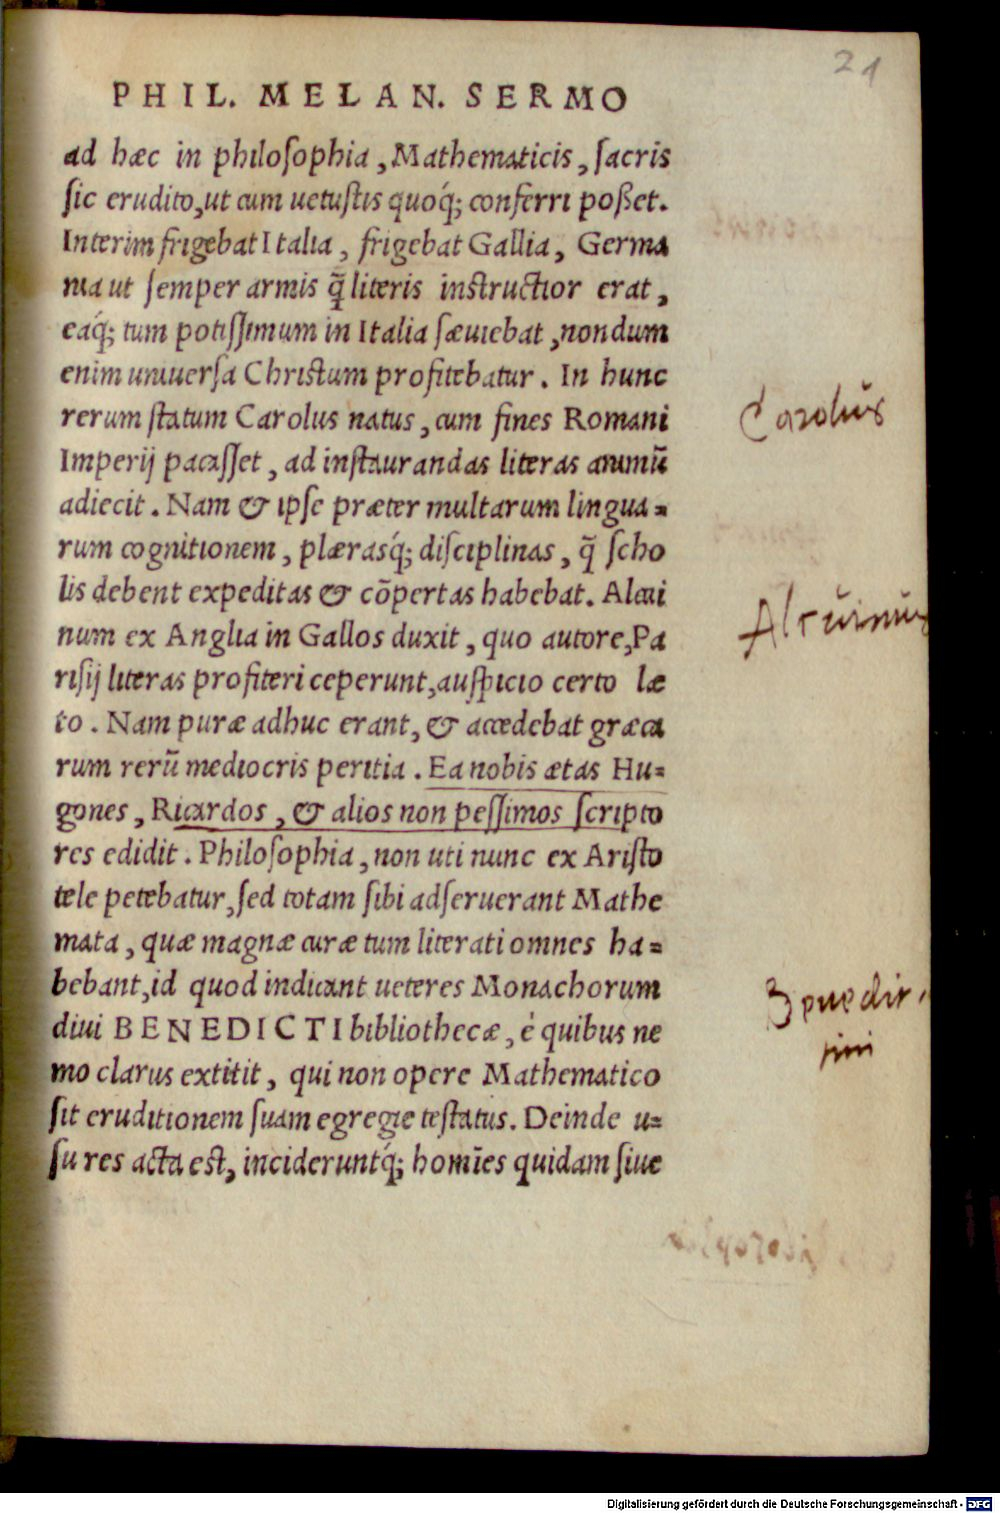 21
PHIL. MELAN. SERMO
ad hæc in philoſophia, Mathematicis, ſacris
ſic erudito, ut cum uetuſtis quoq́; conferri poßet.
Interim frigebat Italia, frigebat Gallia, Germa
nia ut ſemper armis q̃ literis inſtructior erat,
eaq́; tum potiſſimum in Italia ſæuiebat, nondum
enim uniuerſa Chriſtum profitebatur. In hunc
rerum ſtatum Carolus natus, cum fines Romani
Imperij pacaſſet, ad inſtaurandas literas animũ
adiecit. Nam & ipſe præter multarum lingua=
rum cognitionem, plæraſq́; diſciplinas, q̃ ſcho
lis debent expeditas & cõpertas habebat. Alcui
num ex Anglia in Gallos duxit, quo autore, Pa
riſij literas profiteri ceperunt, auſpicio certo læ
to. Nam puræ adhuc erant, & accedebat græca
rum rerũ mediocris peritia. Ea nobis ætas Hu=
gones, Ricardos, & alios non peſſimos ſcripto
res edidit. Philoſophia, non uti nunc ex Ariſto
tele petebatur, ſed totam ſibi adſeruerant Mathe
mata, quæ magnæ curæ tum literati omnes ha=
bebant, id quod indicant ueteres Monachorum
diui BENEDICTI bibliothecæ, è quibus ne
mo clarus extitit, qui non opere Mathematico
ſit eruditionem ſuam egregie teſtatus. Deinde u=
ſu res acta eſt, incideruntq́; homĩes quidam ſiue
Carolus
Alcuinus
Benedic
tini
Digitalisierung gefördert durch die Deutsche Forschungsgemeinschaft - DFG